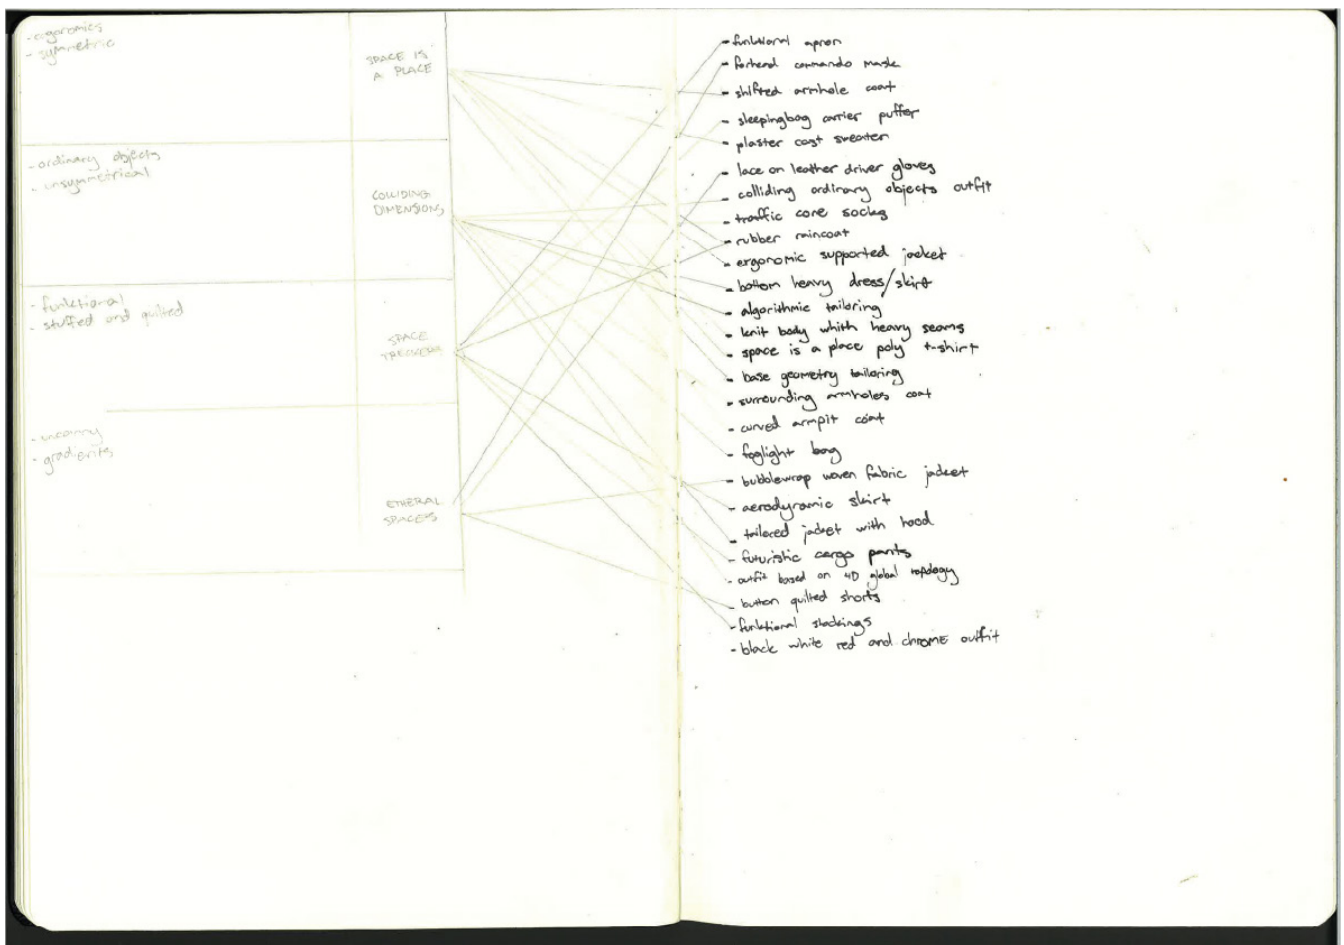 - ergonomics
- symmetric
SPACE IS
A PLACE
- ordinary objects
- unsymmetrical
COLLIDING
DIMENSIONS
- funktional
- stuffed and quilted
SPACE
TRECKERS
- uncanny
- gradients
ETHERAL
SPACERS
- funktional apron
- forhend commando mask
- shifted armhole coat
- sleepingbag carrier puffer
- plaster cast sweater
- lace on leather driver gloves
- colliding ordinary objects outfit
- traffic core socks
- rubber raincoat
- ergonomic supported jacket
- bottom heavy dress/skirt
- algorithmic tailoring
- knit body whith heavy seams
- space is a place poly t-shirt
- base geometry tailoring
- surrounding armholes coat
- curved armpit coat
- foglight bag
- bubblewrap woven fabric jacket
- aerodynamic skirt
- tailored jacket with hood
- futuristic cargo pants
- outfit based on 4D global topology
- button quilted shorts
- funktional stockings
- black white red and chrome outfit